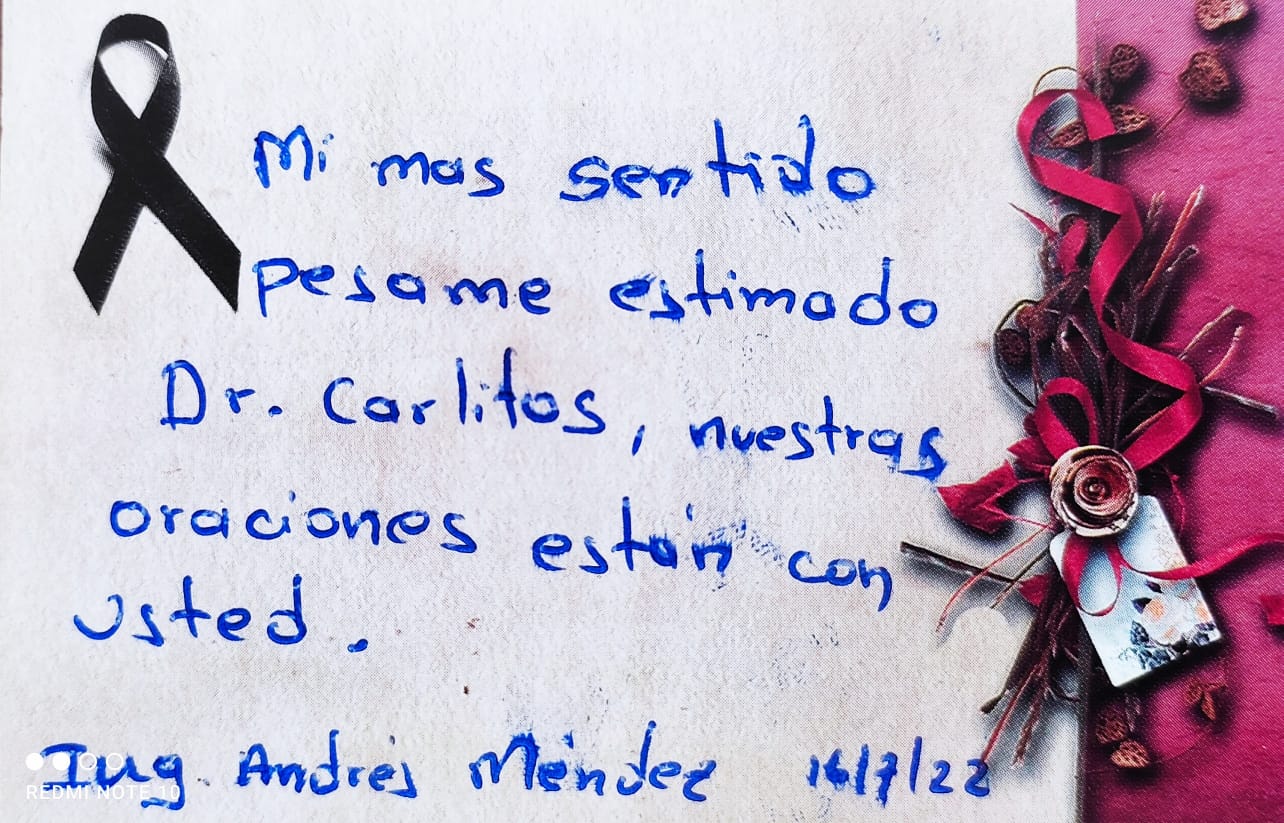 Mi mas sentido
pesame estimado
Dr. Carlitos, nuestras
oraciones están con
usted.
Ing. Andrés Méndez 16/7/22
REDMI NOTE 10